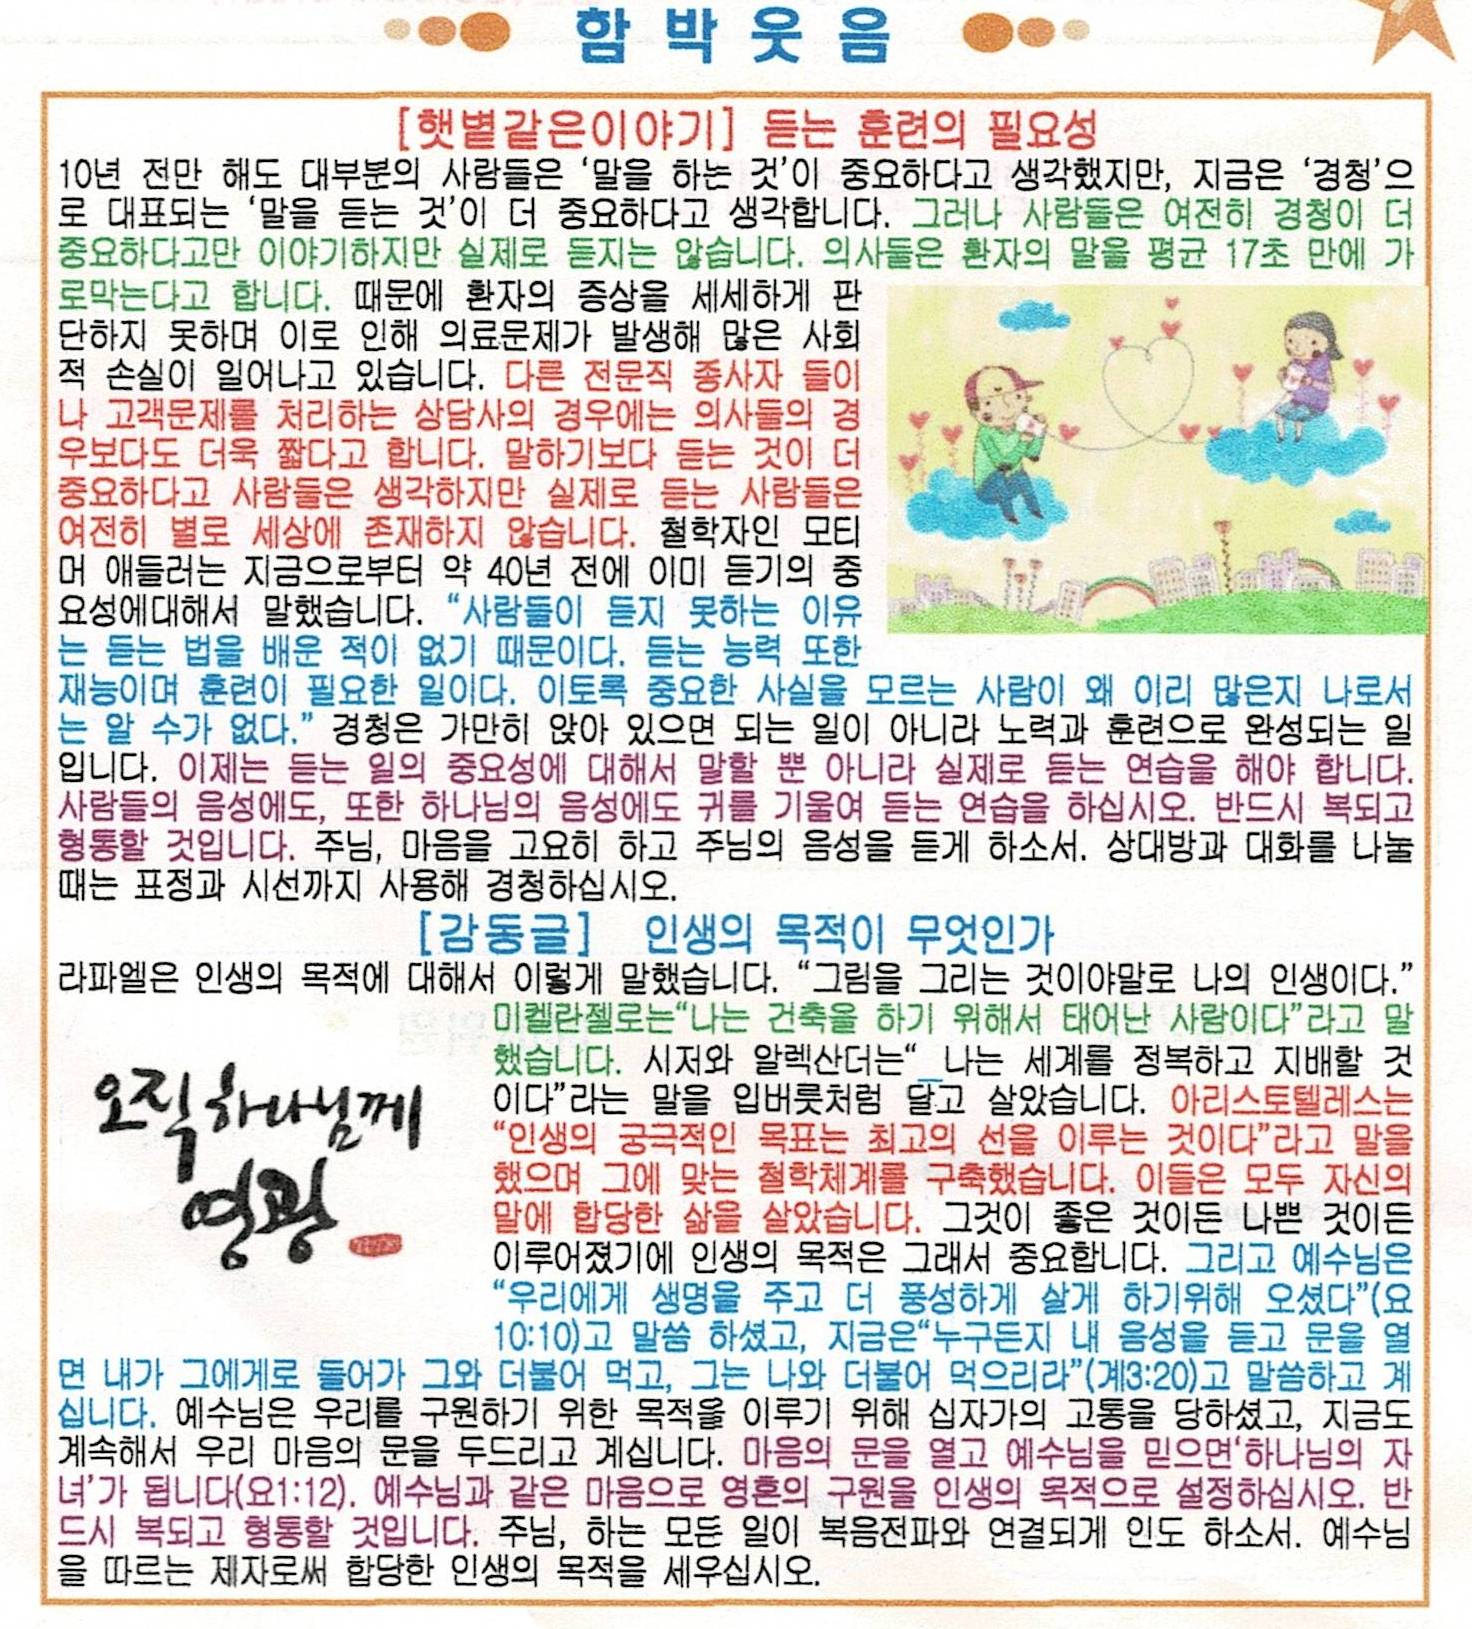 함박웃음
[햇볕같은이야기] 듣는 훈련의 필요성
10년 전만 해도 대부분의 사람들은 ‘말을 하는 것’이 중요하다고 생각했지만, 지금은 ‘경청’으
로 대표되는 ‘말을 듣는 것’이 더 중요하다고 생각합니다. 그러나 사람들은 여전히 경청이 더
중요하다고만 이야기하지만 실제로 듣지는 않습니다. 의사들은 환자의 말을 평균 17초 만에 가
로막는다고 합니다. 때문에 환자의 증상을 세세하게 판
단하지 못하며 이로 인해 의료문제가 발생해 많은 사회
적 손실이 일어나고 있습니다. 다른 전문직 종사자 들이
나 고객문제를 처리하는 상담사의 경우에는 의사들의 경
우보다도 더욱 짧다고 합니다. 말하기보다 듣는 것이 더
중요하다고 사람들은 생각하지만 실제로 듣는 사람들은
여전히 별로 세상에 존재하지 않습니다. 철학자인 모티
머 애들러는 지금으로부터 약 40년 전에 이미 듣기의 중
요성에대해서 말했습니다. “사람들이 듣지 못하는 이유
는 듣는 법을 배운 적이 없기 때문이다. 듣는 능력 또한
재능이며 훈련이 필요한 일이다. 이토록 중요한 사실을 모르는 사람이 왜 이리 많은지 나로서
는 알 수가 없다.” 경청은 가만히 앉아 있으면 되는 일이 아니라 노력과 훈련으로 완성되는 일
입니다. 이제는 듣는 일의 중요성에 대해서 말할 뿐 아니라 실제로 듣는 연습을 해야 합니다.
사람들의 음성에도, 또한 하나님의 음성에도 귀를 기울여 듣는 연습을 하십시오. 반드시 복되고
형통할 것입니다. 주님, 마음을 고요히 하고 주님의 음성을 듣게 하소서. 상대방과 대화를 나눌
때는 표정과 시선까지 사용해 경청하십시오.
[감동글] 인생의 목적이 무엇인가
라파엘은 인생의 목적에 대해서 이렇게 말했습니다. “그림을 그리는 것이야말로 나의 인생이다.”
미켈란젤로는“나는 건축을 하기 위해서 태어난 사람이다”라고 말
했습니다. 시저와 알렉산더는“ 나는 세계를 정복하고 지배할 것
이다”라는 말을 입버릇처럼 달고 살았습니다. 아리스토텔레스는
“인생의 궁극적인 목표는 최고의 선을 이루는 것이다”라고 말을
했으며 그에 맞는 철학체계를 구축했습니다. 이들은 모두 자신의
말에 합당한 삶을 살았습니다. 그것이 좋은 것이든 나쁜 것이든
이루어졌기에 인생의 목적은 그래서 중요합니다. 그리고 예수님은
“우리에게 생명을 주고 더 풍성하게 살게 하기위해 오셨다”(요
10:10)고 말씀 하셨고, 지금은“누구든지 내 음성을 듣고 문을 열
면 내가 그에게로 들어가 그와 더불어 먹고, 그는 나와 더불어 먹으리라”(계3:20)고 말씀하고 계
십니다. 예수님은 우리를 구원하기 위한 목적을 이루기 위해 십자가의 고통을 당하셨고, 지금도
계속해서 우리 마음의 문을 두드리고 계십니다. 마음의 문을 열고 예수님을 믿으면‘하나님의 자
녀’가 됩니다(요1:12). 예수님과 같은 마음으로 영혼의 구원을 인생의 목적으로 설정하십시오. 반
드시 복되고 형통할 것입니다. 주님, 하는 모든 일이 복음전파와 연결되게 인도 하소서. 예수님
을 따르는 제자로써 합당한 인생의 목적을 세우십시오.
오직 하나님께
영광